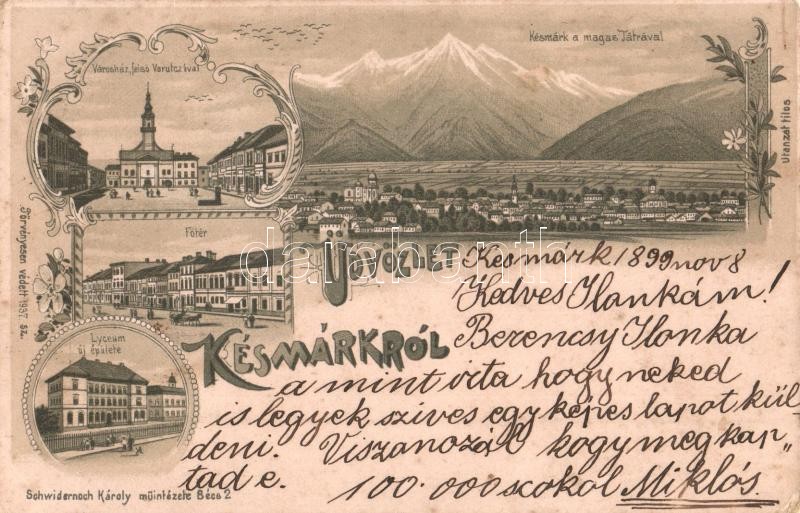 Városház, felső Varutczával
Késmárk a magas Tátrával
Utánzat tilos
Törvényesen védett 1937 sz.
Főtér
Lyceum
új épülete
Üdvözlet
Késmárkról
Schwidernoch Károly műintézete Bécs 2
darabanth.com
Kesmárk 1899 nov 8
Kedves Ilonkám!
Berencsy Ilonka
a mint irta hogy neked
is legyek szives egy képes lapot kül
deni. Viszanozál hogy megkap„
tad e. 100.000 scokol Miklós.